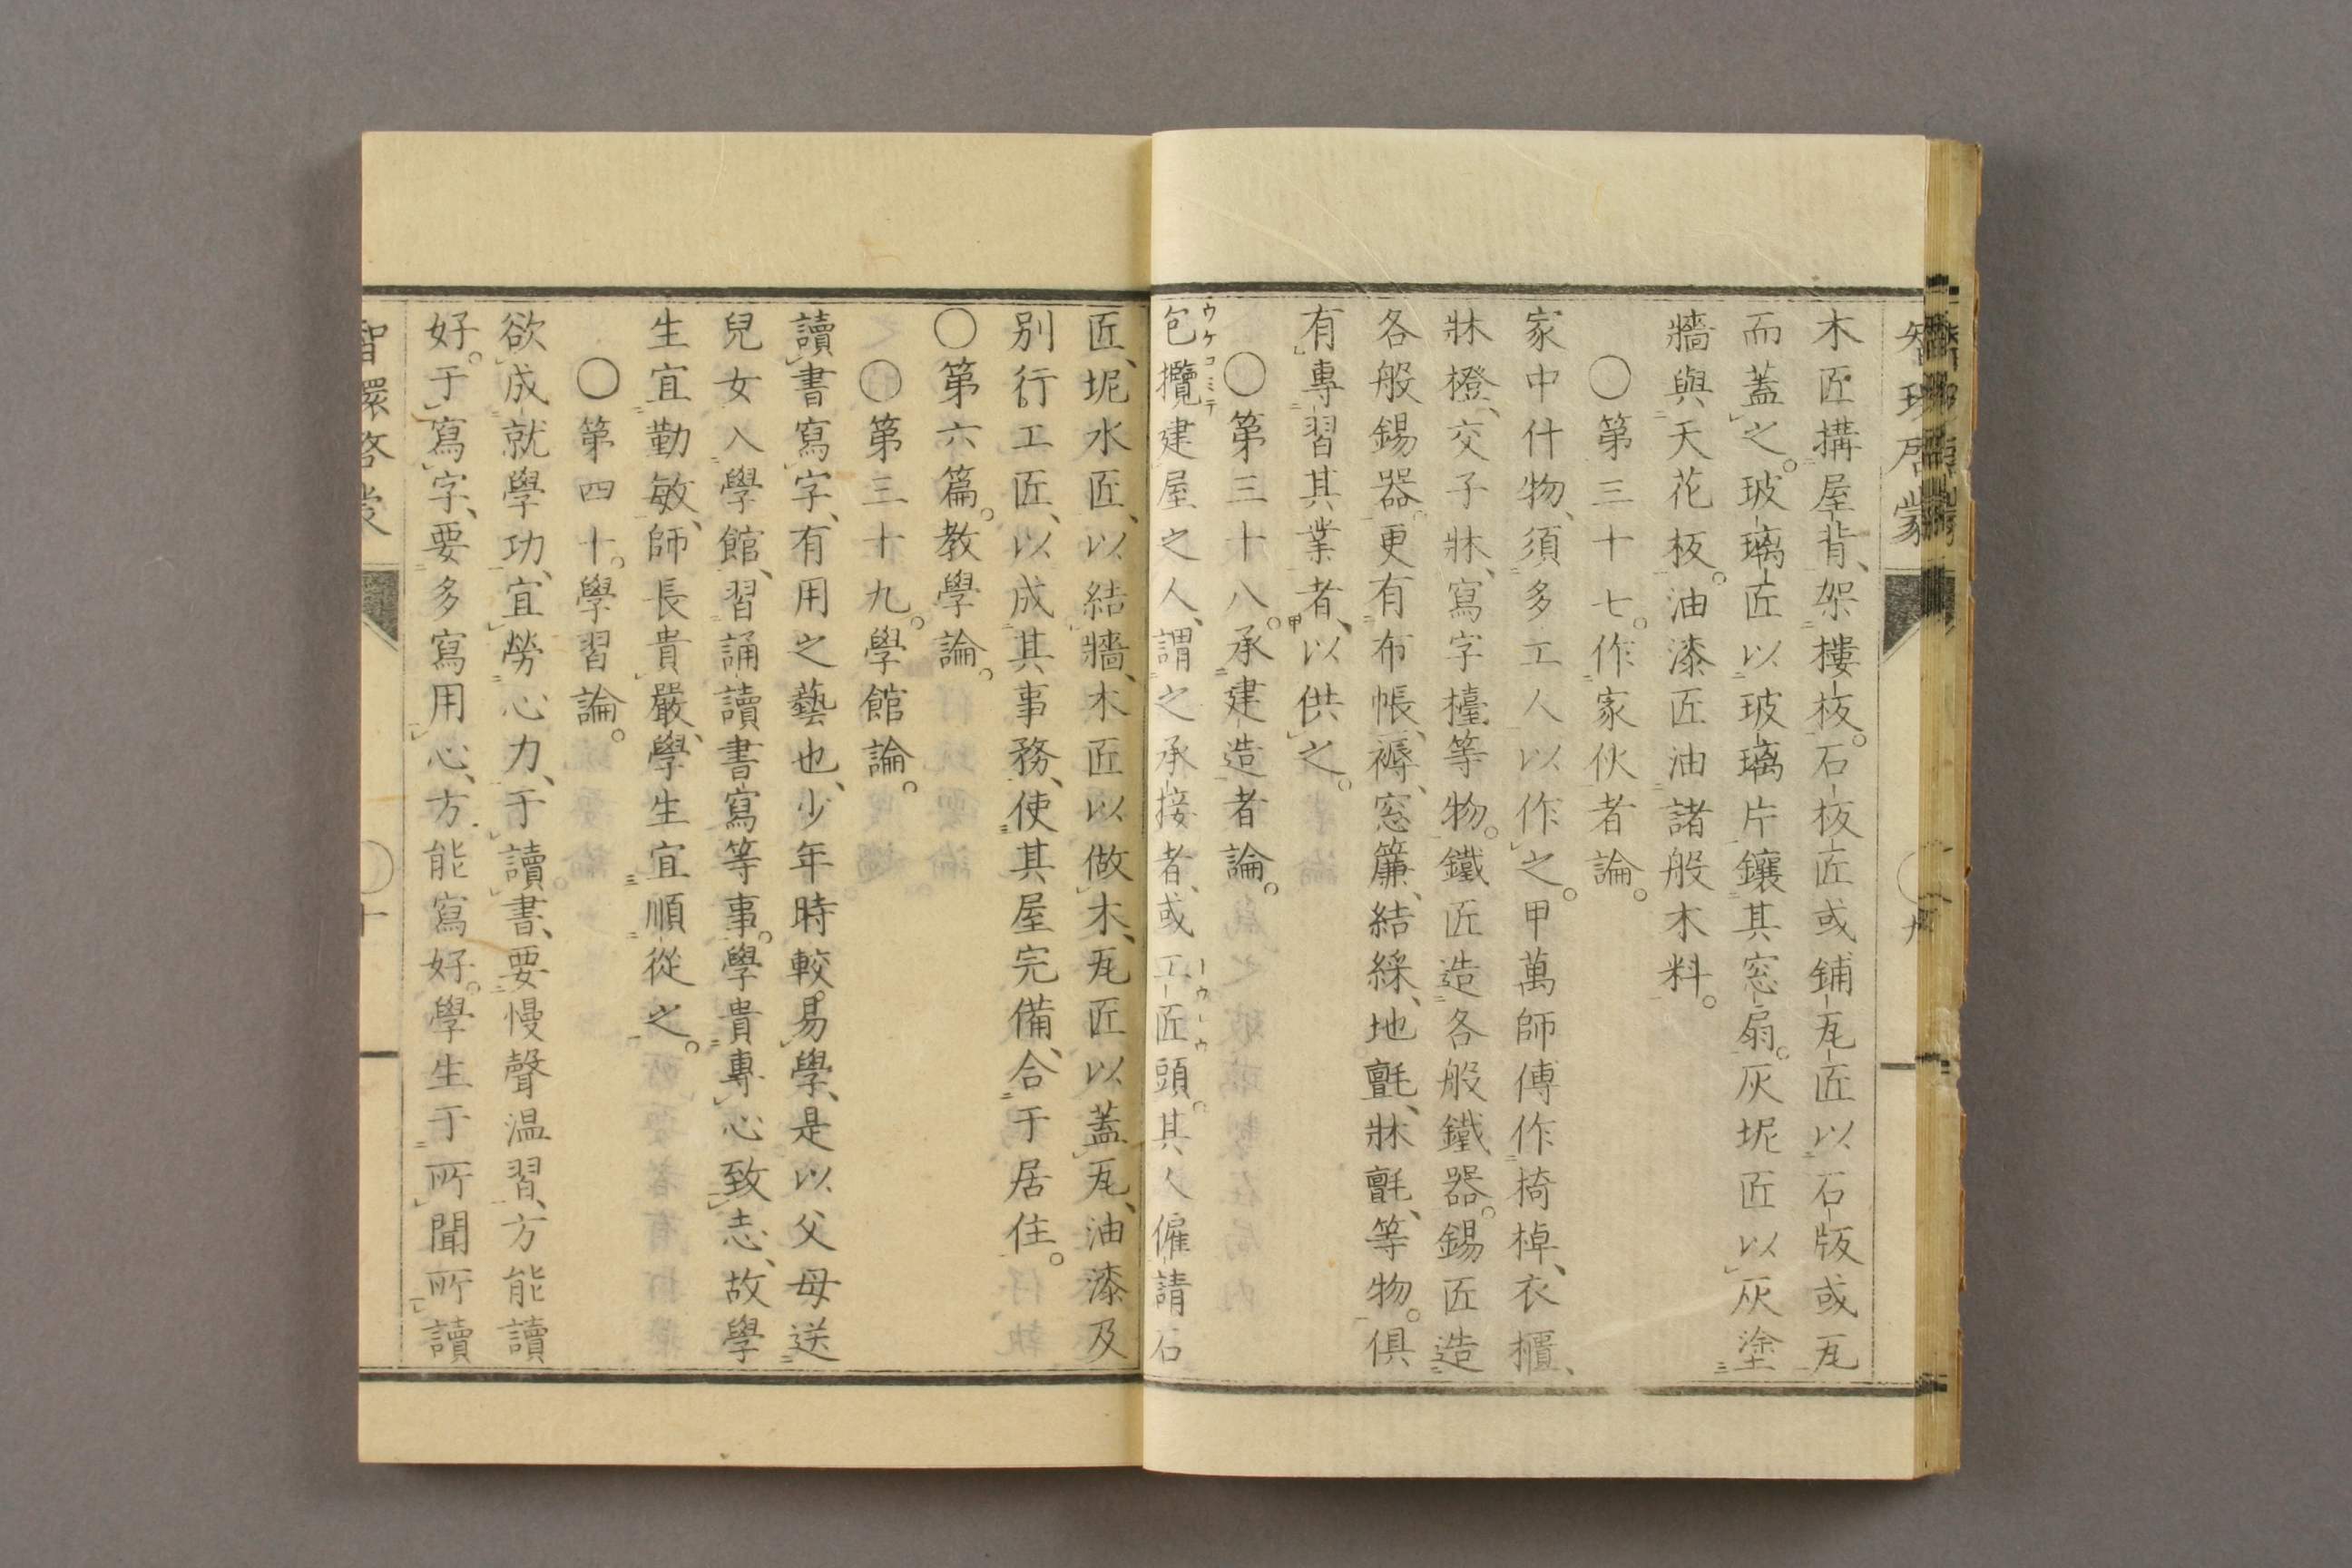 智環啓蒙
九
木匠搆屋背、架樓板。石板匠或鋪瓦匠以石版或瓦
而蓋之。玻璃匠以玻璃片鑲其窓扇。灰坭匠以灰塗
牆與天花板。油漆匠油諸般木料。
〇第三十七。作家伙者論。
家中什物、須多工人以作之。甲萬師傅作椅棹、衣櫃、
牀櫈、交子牀、寫字檯等物。鐵匠造各般鐵器。錫匠造
各般錫器。更有布帳、褥、窓簾、結綵、地氈、牀氈、等物。俱
有專習其業者、以供之。
〇第三十八。承建造者論。
包攬建屋之人、謂之承接者、或工匠頭。其人僱請石
匠、坭水匠、以結牆、木匠以做木、瓦匠以蓋瓦、油漆及
別行工匠、以成其事務、使其屋完備、合于居住。
〇第六篇。教學論。
〇第三十九。學館論。
讀書寫字、有用之藝也、少年時較易學、是以父母送
兒女入學館、習誦讀書寫等事。學貴專心致志、故學
生宜勤敏、師長貴嚴、學生宜順從之。
〇第四十。學習論。
欲成就學功、宜勞心力、于讀書、要慢聲温習、方能讀
好。于寫字、要多寫用心、方能寫好。學生于所聞所讀
智環啓蒙
十